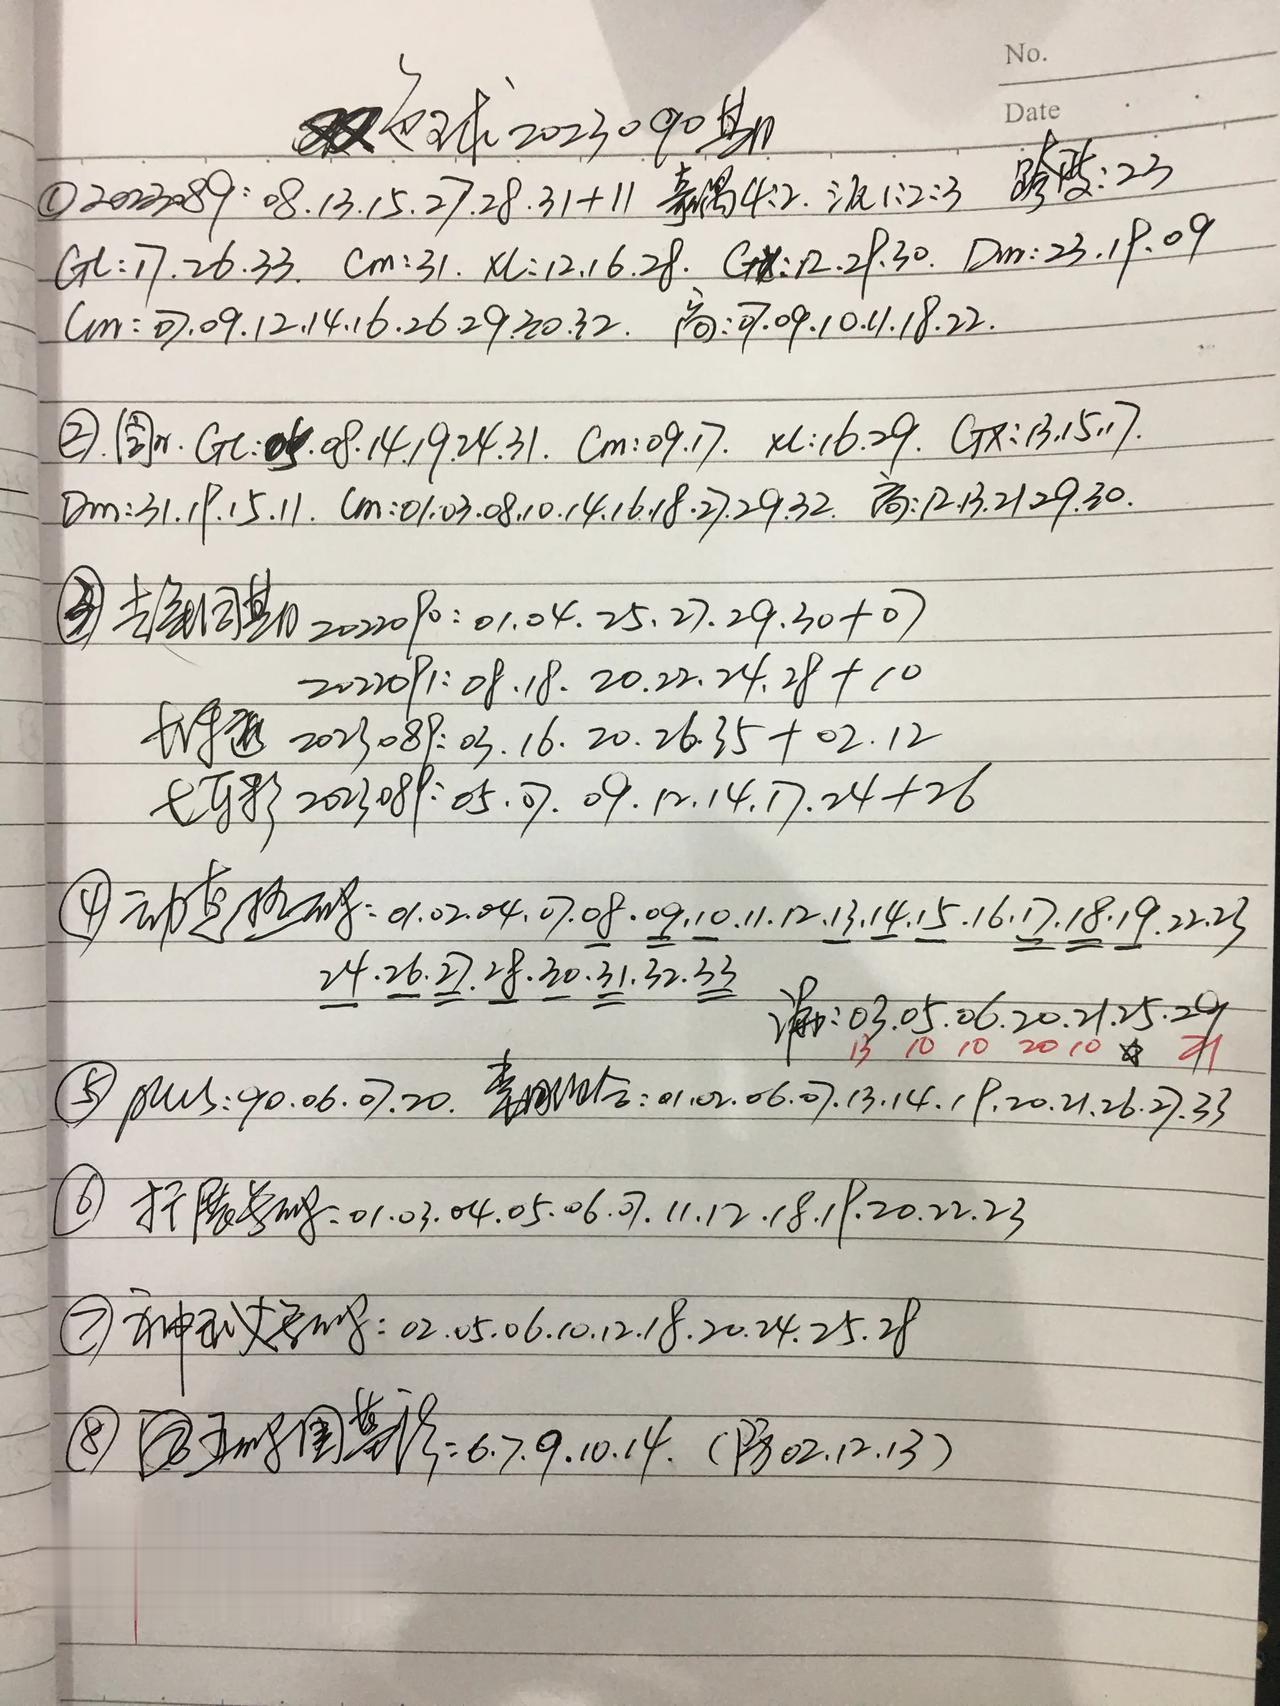 No.
Date
双色球2023090期
①2023089:08.13.15.27.28.31+11 奇偶4:2. 波1:2:3 跨度:23
GL:17.26.33. Cm:31. XL:12.16.28. GX:12.29.30. Dm:23.19.09
Cm:07.09.12.14.16.26.29.30.32. 高:07.09.10.11.18.22.
②. GL: .08.14.19.24.31. Cm:09.17. XL:16.29. GX:13.15.17.
Dm:31.19.15.11. Cm:01.03.08.10.14.16.18.27.29.32. 高:12.13.21.29.30.
③去年同期2022090:01.04.25.27.29.30+07
2022091:08.18.20.22.24.28+10
2023089:03.16.20.26.35+02.12
七乐彩2023089:05.07.09.12.14.17.24+26
④ 热码:01.02.04.07.08.09.10.11.12.13.14.15.16.17.18.19.22.23
24.26.27.28.30.31.32.33
漏:03.05.06.20.21.25.29
13 10 10 20 10 ☆ 21
⑤ plus:90.06.07.20. :01.02.06.07.13.14.19.20.21.26.27.33
⑥ 扩展号码:01.03.04.05.06.07.11.12.18.19.20.22.23
⑦ 号码:02.05.06.10.12.18.20.24.25.28
⑧ 码围蓝:6.7.9.10.14. (防02.12.13)